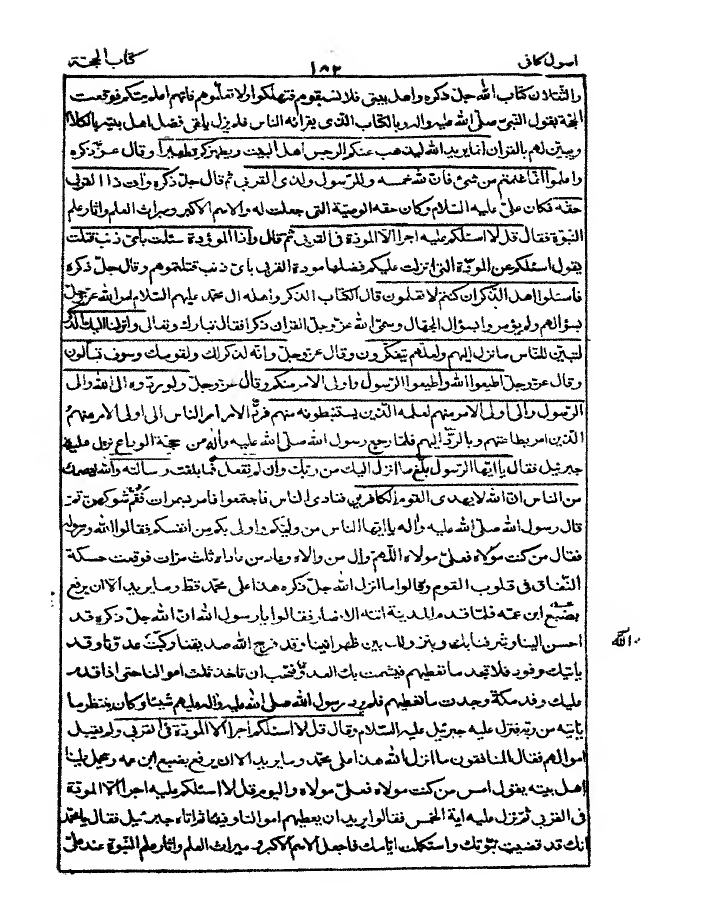 اصول كافى ١٨٢ كتاب الحجة
والثقلان كتاب الله جل ذكره واهل بيتى فلا تسبقوهم فتهلكوا ولا تعلّموهم فانهم اعلم منكم فوقعت
الحجة بقول النبى صلى الله عليه وآله وبالكتاب الذى يقرأه الناس فلم يزل يلقى فضل اهل بيته بالكلام
ويبين لهم بالقرآن انما يريد الله ليذهب عنكم الرجس اهل البيت ويطهركم تطهيرا وقال عز ذكره
واعلموا انما غنمتم من شئ فان لله خمسه وللرسول ولذى القربى ثم قال جل ذكره وآت ذا القربى
حقه فكان على عليه السلام وكان حقه الوصية التى جعلت له والاسم الاكبر وميراث العلم وآثار علم
النبوة فقال قل لا اسئلكم عليه اجرا الا المودة فى القربى ثم قال واذا الموؤدة سئلت باى ذنب قتلت
يقول اسئلكم عن المودة التى انزلت عليكم فضلها مودة القربى باى ذنب قتلتموهم وقال جل ذكره
فاسئلوا اهل الذكر ان كنتم لا تعلمون قال الكتاب الذكر واهله آل محمد عليهم السلام امر الله عز وجل
بسؤالهم ولم يؤمروا بسؤال الجهال وسمى الله عز وجل القرآن ذكرا فقال تبارك وتعالى وانزلنا اليك الذكر
لتبين للناس ما نزل اليهم ولعلهم يتفكرون وقال عز وجل وانه لذكر لك ولقومك وسوف تسألون
وقال عز وجل اطيعوا الله واطيعوا الرسول واولى الامر منكم وقال عز وجل ولو ردوه الى الله والى
الرسول والى اولى الامر منهم لعلمه الذين يستنبطونه منهم فرد الامر امر الناس الى اولى الامر منهم
الذين امر بطاعتهم وبالرد اليهم فلما رجع رسول الله صلى الله عليه وآله من حجة الوداع نزل عليه
جبرئيل فقال يا ايها الرسول بلغ ما انزل اليك من ربك وان لم تفعل فما بلغت رسالته والله يعصمك
من الناس ان الله لا يهدى القوم الكافرين فنادى الناس فاجتمعوا فامر بسمرات فقم شوكهن ثم
قال رسول الله صلى الله عليه وآله يا ايها الناس من وليكم واولى بكم من انفسكم فقالوا الله ورسوله
فقال من كنت مولاه فعلى مولاه اللهم وال من والاه وعاد من عاداه ثلث مرات فوقعت حسكة
النفاق فى قلوب القوم وقالوا ما انزل الله جل ذكره هذا على محمد قط وما يريد الا ان يرفع
بضبع ابن عمه فلما قدم المدينة اتته الانصار فقالوا يا رسول الله ان الله جل ذكره قد
احسن الينا وشرفنا بك وبنزولك بين ظهرانينا وقد فرح الله صديقنا وكبت عدونا وقد
الله
ياتيك وفود فلا تجد ما تعطيهم فيشمت بك العدو فنحب ان تاخذ ثلث اموالنا حتى اذا قدم
عليك وفد مكة وجدت ما تعطيهم فلم يرد رسول الله صلى الله عليه وآله عليهم شيئا وكان ينتظر ما
ياتيه من ربه فنزل عليه جبرئيل عليه السلام وقال قل لا اسئلكم اجرا الا المودة فى القربى ولم يقبل
اموالهم فقال المنافقون ما انزل الله هذا على محمد وما يريد الا ان يرفع بضبع ابن عمه ويحمل علينا
اهل بيته يقول امس من كنت مولاه فعلى مولاه واليوم قل لا اسئلكم عليه اجرا الا المودة
فى القربى ثم نزل عليه اية الخمس فقالوا يريد ان يعطيهم اموالنا وفيئنا ثم اتاه جبرئيل فقال يا محمد
انك قد قضيت نبوتك واستكملت ايامك فاجعل الاسم الاكبر وميراث العلم وآثار علم النبوة عند على